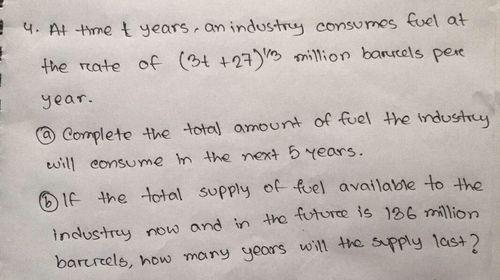 4. At time t years, an industry consumes fuel at
the rate of (3t +27)^1/3 million barrels per
year.
(a) Complete the total amount of fuel the industry
will consume in the next 5 years.
(b) If the total supply of fuel available to the
industry now and in the future is 136 million
barrels, how many years will the supply last?